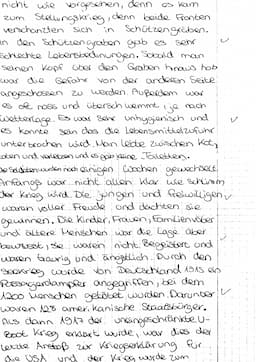 nicht wie vorgesehen, denn es kam
zum Stellungskrieg, denn beide Fronten
verschanzten sich in Schützengräben.
In den Schützengräben gab es sehr
schlechte Lebensbedinungen. Sobald man
seinen Kopf über den Graben hinaus hob
war die Gefahr von der anderen Seite
angeschossen zu werden. Außerdem war
es oft nass und überschwemmt, je nach
Wetterlage. Es war sehr unhygienisch und
es konnte sein das die Lebensmittelzufuhr
unterbrochen wird. Man lebte zwischen Kot,
und es gab keine Toiletten.
Die Soldaten wurden nach einigen Wochen gewechselt.
Anfangs war nicht allen klar wie schlimm
der Krieg wird. Die jungen und Freiwilligen
waren voller Freude und dachten sie
gewinnen. Die Kinder, Frauen, Familienväter
und ältere Menschen war die Lage aber
bewusst, sie waren nicht Begeistert und
waren traurig und ängstlich. Durch den
Seekrieg wurde von Deutschland 1915 ein
Passagierdampfer angegriffen, bei dem
1200 Menschen getötet wurden. Darunter
waren 128 amerikanische Staatsbürger.
Als dann 1917 der uneingeschränkte U-
Boot Krieg erklärt wurde, war dies der
letzte Anstoß zur Kriegserklärung für
die USA und der Krieg wurde zum